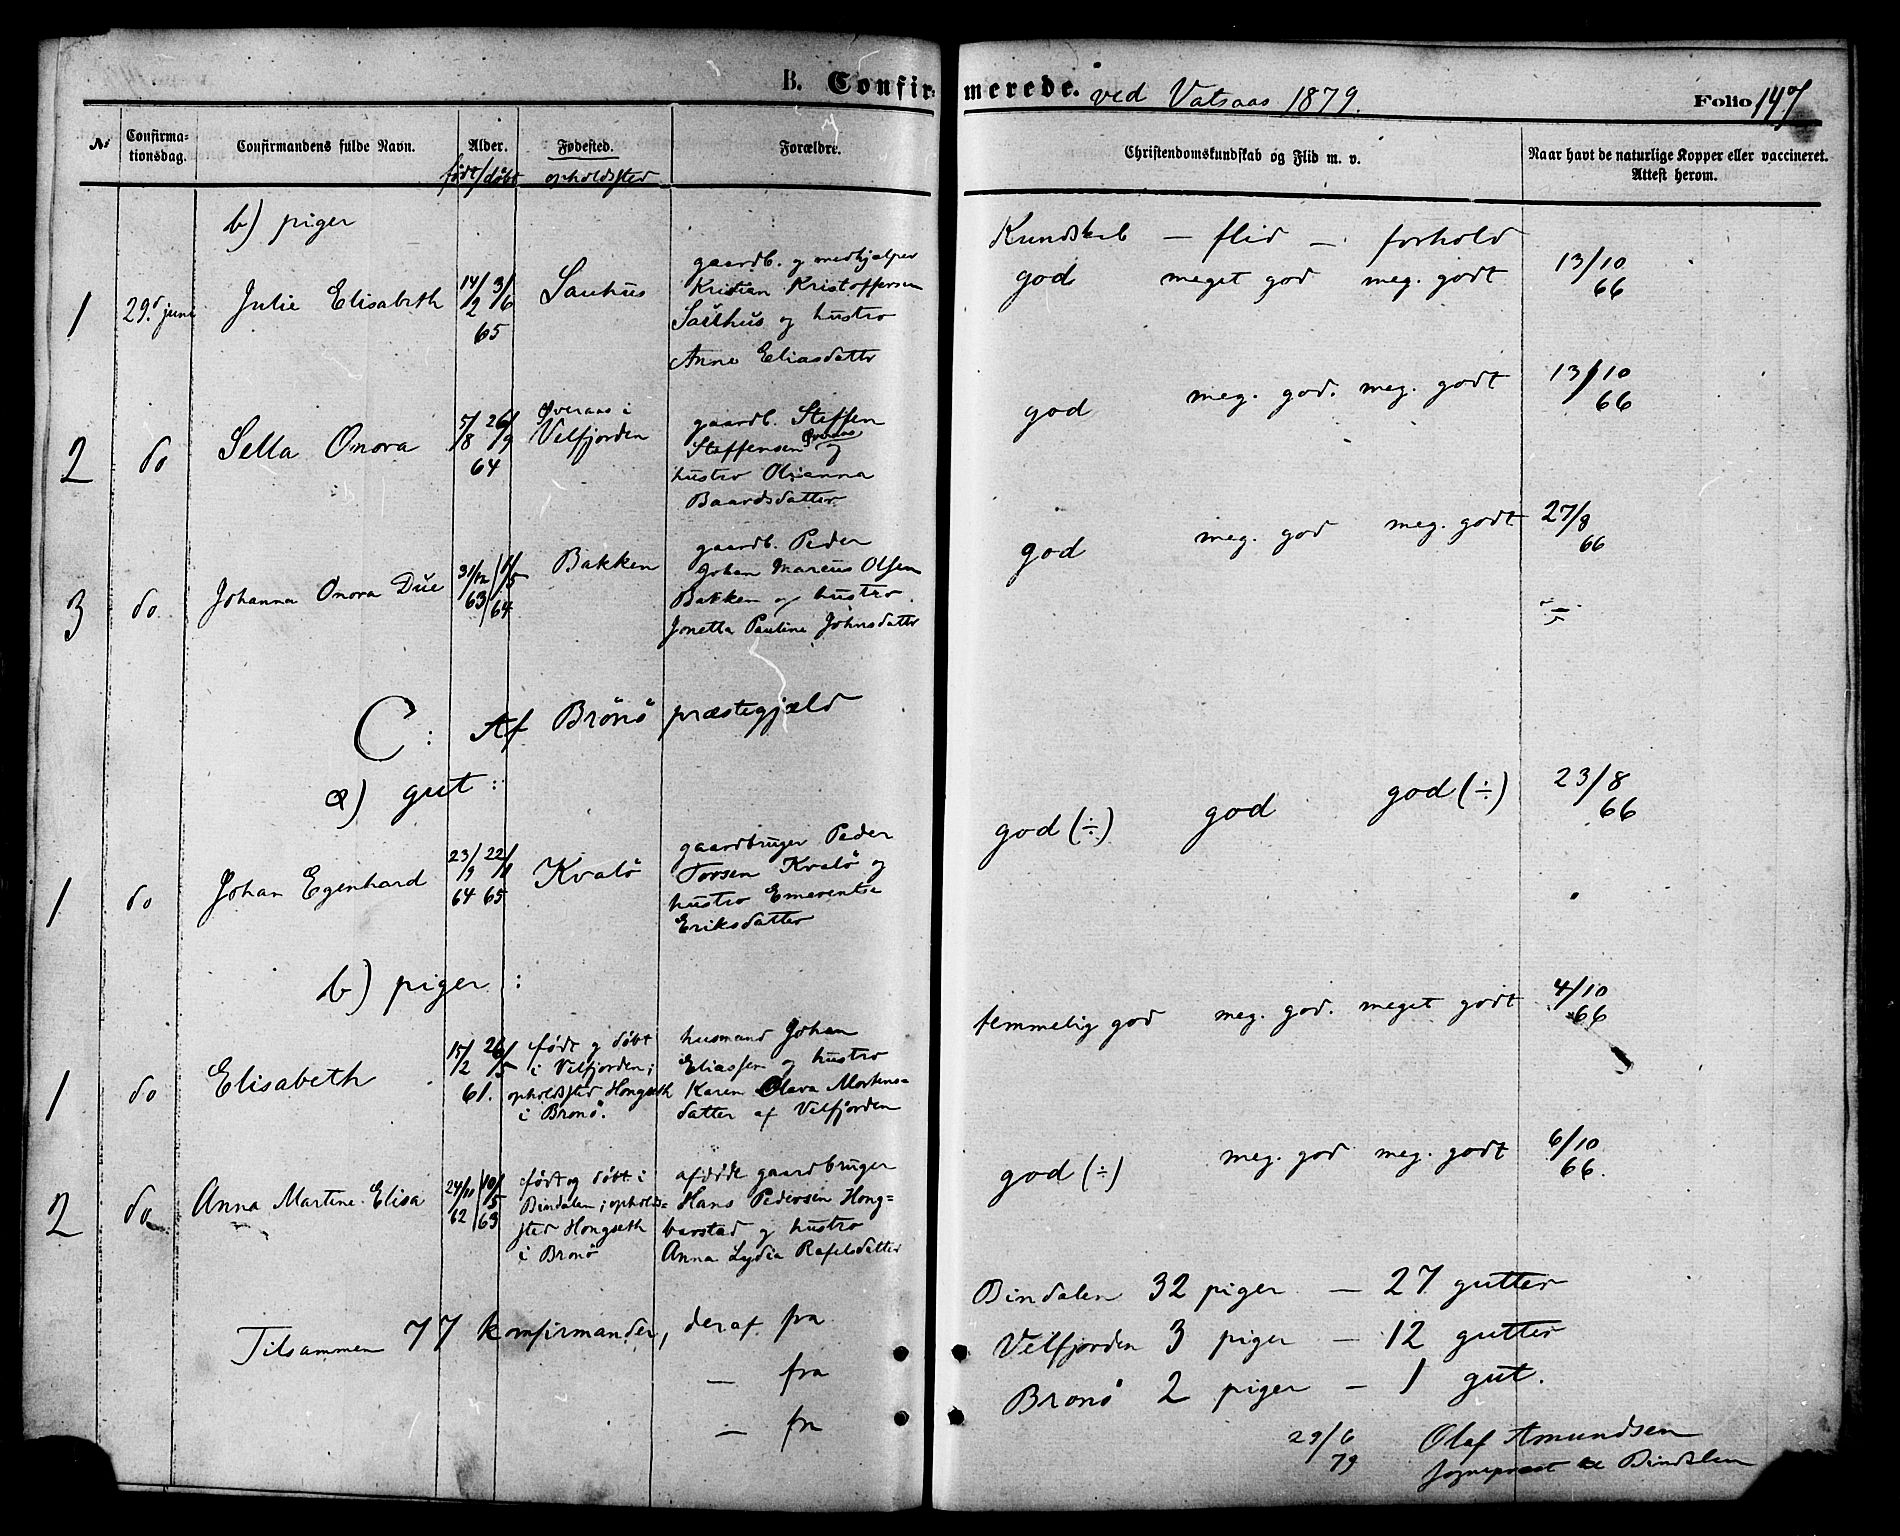 B. Confir- merede. ved Vatsaas 1879. Folio 147
No Confirma-tionsdag. Confirmandens fulde Navn. Alder. Fødested. Forældre. Christendomskundskab og Flid m. v. Naar havt de naturlige Kopper eller vaccineret. Attest herom.
født/døbt opholdssted
b) piger Kundskab — flid — forhold
1 29. juni Julie Elisabeth 14/2 3/6 65 Sauhus gaardb. og medhjælper god meget god meg. godt 13/10 66
Kristian Kristoffersen
Sauhus og hustro
Anne Eliasdatter
2 do Sella Onora 5/8 26/9 64 Øveraas i Velfjorden gaardb. Steffen god meg. god. meg. godt 13/10 66
Steffensen Øveraas og
hustro Olianna
Baardsdatter
3 do. Johanna Onora Due 31/12 63 | 11/5 64 Bakken gaardb. Peder god meg. god meg. godt 27/8 66
Johan Marcus Olsen
Bakken og hustro
Jonetta Pauline Johnsdatter
C: Af Brönö præstegjæld
a) gut:
1 do Johan Egenhard 23/9 64 22/1 65 Kvalö gaardbruger Peder god (÷) god god (÷) 23/8 66
Torsen Kvalö og
hustro Emerentse
Eriksdatter
b) piger:
1 do Elisabeth 15/2 26/5 61. født og døbt i Velfjorden; opholdssted Hongseth i Brönö. husmand Johan temmelig god meg. god. meget godt 4/10 66
Eliassen og hustro
Karen Olava Mortens-
datter af Velfjorden
2 do Anna Martine Elisa 24/11 62 | 10/5 63 født og døbt i Bindalen; opholds-sted Hongseth i Brönö afdøde gaardbruger god (÷) meg. god meg. godt 6/10 66.
Hans Pedersen Hong-
barstad og hustro
Anna Lydia Rafelsdatter
Tilsammen 77 konfirmander, deraf fra Bindalen 32 piger — 27 gutter
— fra Velfjorden 3 piger — 12 gutter
— fra Brönö 2 piger — 1 gut.
29/6 79 Olaf Amundsen
sogneprest til Bindalen